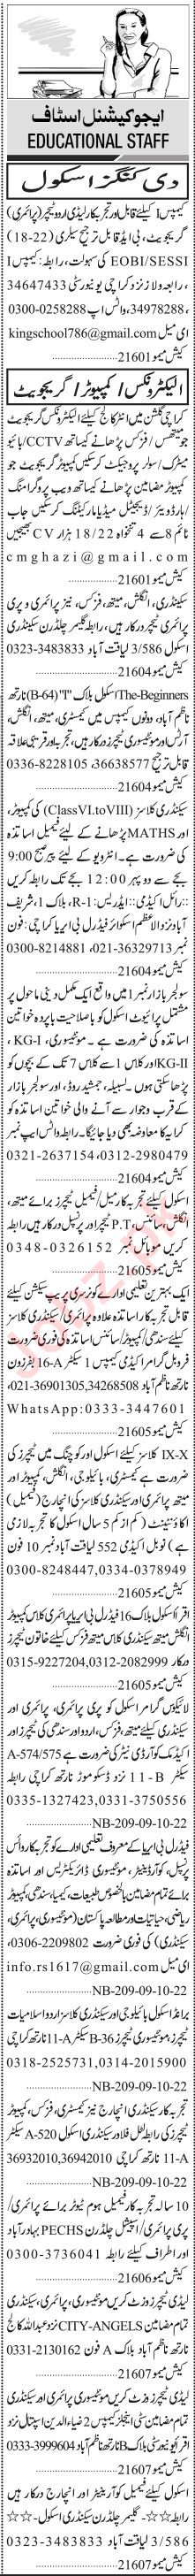 ایجوکیشنل اسٹاف
EDUCATIONAL STAFF
دی کنگز اسکول
کیمپس I کیلئے قابل اور تجربہ کار لیڈی اردو ٹیچر (پرائمری)
گریجویٹ، بی ایڈ قابل ترجیح سیلری (22-18)
EOBI/SESSI کی سہولت، رابطہ: کیمپس I
، رابعہ ولاز نزد کراچی یونیورسٹی 34647433
، 34978288 واٹس اپ 0300-0258288
ای میل kingschool786@gmail.com
کیش میمو 21601
الیکٹرونکس/ کمپیوٹر/ گریجویٹ
کراچی گلشن میں انٹر کالج کیلئے الیکٹرونکس گریجویٹ
جو میتھس/ فزکس پڑھانے کیساتھ CCTV/ بائیو
میٹرک/ سولر پروجیکٹ کرسکیں کمپیوٹر گریجویٹ جو
کمپیوٹر مضامین پڑھانے کیساتھ ویب پروگرامنگ
/ہارڈویئر/ ڈیجیٹل میڈیا مارکیٹنگ کرسکیں جاب
ٹائم 8 سے 4 تنخواہ 18/22 ہزار CV بھیجیں
cmghazi@gmail.com
کیش میمو 21601
سیکنڈری، انگلش، میتھ، فزکس، نیز پرائمری و پری
پرائمری ٹیچرز درکار ہیں، رابطہ گلیمر چلڈرن سیکنڈری
اسکول 3/586 لیاقت آباد 0323-3483833
کیش میمو 21604
The-Beginners اسکول بلاک "T" (B-64) نارتھ
ناظم آباد، دونوں کیمپس میں کیمسٹری، میتھ، انگلش،
آرٹس اور مونٹیسوری ٹیچرز درکار ہیں، تجربہ اور قریبی علاقہ
قابل ترجیح 36638577، 0336-8228105
کیش میمو 21604
سیکنڈری کلاسز (ClassVI.toVIII) کی کمپیوٹر،
اور MATHS پڑھانے کے لئے فیمیل اساتذہ
کی ضرورت ہے۔ انٹرویو کے لئے پیر صبح 9:00
بجے سے دوپہر 12:00 بجے تک رابطہ کریں
::رائل اکیڈمی:: ایڈریس: R-1، بلاک 1، شریف
آباد نزد والاعظم اسکوائر فیڈرل بی ایریا کراچی: فون
نمبر 36329713-021، 0300-8214881
کیش میمو 21604
سولجر بازار نمبر 1 میں واقع ایک مکمل دینی ماحول پر
مشتمل پرائیوٹ اسکول کو باصلاحیت باپردہ خواتین
اساتذہ کی ضرورت ہے۔ مونٹیسوری، KG-I،
KG-II اور کلاس 1 سے کلاس 7 تک کے بچوں کو
پڑھا سکتی ہوں۔ لسبیلہ، جمشید روڈ، اور سولجر بازار
کے قرب و جوار سے آنے والی خواتین اساتذہ کو
کرایہ کا معاوضہ بھی دیا جائیگا۔ رابطہ واٹس ایپ نمبر
0321-2637154، 0312-2980479
کیش میمو 21604
اسکول کیلئے تجربہ کار میل/ فیمیل ٹیچرز برائے میتھ،
انگلش، سائنس، P.T ٹیچر اور پرنسپل درکار ہیں رابطہ
کریں موبائل نمبر 0348-0326152
کیش میمو 21605
ایک بہترین تعلیمی ادارے کو نرسری پریپ سیکشن کیلئے
قابل تجربہ کار اساتذہ علاوہ پرائمری/ سیکنڈری کلاسز
کیلئے سندھی/ کمپیوٹر/ سائنس اساتذہ کی فوری ضرورت
فروبل گرامر اکیڈمی کیمپس 1 سیکٹر 16-A بفرزون
نارتھ ناظم آباد 34268508، 021-36901305،
WhatsApp:0333-3447601
کیش میمو 21605
IX-X کلاسز کیلئے اسکول اور کوچنگ میں ٹیچرز کی
ضرورت ہے کیمسٹری، بائیلوجی، انگلش، کمپیوٹر اور
میتھ پرائمری اور سیکنڈری کلاسز کی انچارج (فیمیل)
اکاؤنٹینٹ (کم از کم 5 سال اسکول کا تجربہ لازمی
ہے) نوبل اکیڈمی 552 لیاقت آباد نمبر 10 فون
0300-8248447,0334-0378949
کیش میمو 21605
اقراء اسکول بلاک 16 فیڈرل بی ایریا پرائمری کلاس کمپیوٹر
انگلش میتھ سیکنڈری کلاس میتھ فزکس کیلئے خاتون ٹیچرز
درکار 0315-9227204,0312-2082999
کیش میمو 21605
لائیکوس گرامر اسکول کو پری پرائمری، پرائمری اور
سیکنڈری کیلئے میتھ، فزکس، اردو اور سندھی کی ٹیچرز اور
اکیڈمک کوآرڈی نیٹر کی ضرورت ہے A-574/575
سیکٹر 11-B نزد ڈسکو موڑ نارتھ کراچی رابطہ
0335-1327423,0331-3750556
NB-209-09-10-22
فیڈرل بی ایریا کے معروف تعلیمی ادارے کو تجربہ کار وائس
پرنسپل، کوآرڈینیٹر، مونٹیسوری ڈائریکٹریس اور اساتذہ
برائے تمام مضامین بالخصوص طبیعات، کیمیا، سندھی، کمپیوٹر
ریاضی، حیاتیات اور مطالعہ پاکستان (مونٹیسوری، پرائمری،
سیکنڈری) کی فوری ضرورت 2209802-0306،
ای میل info.rs1617@gmail.com
NB-209-09-10-22
برائڈ اسکول بائیلوجی اور سیکنڈری کلاسز اردو اسلامیات
ٹیچرز، مونٹیسوری ٹیچرز B-36 سیکٹر 11-A نارتھ کراچی
0318-2525731,0314-2015900
NB-209-09-10-22
تجربہ کار سیکنڈری انچارج نیز کیمسٹری، فزکس، کمپیوٹر
ٹیچرز کی رابطہ لٹل فلاور سیکنڈری اسکول A-520 سیکٹر
11-A نارتھ کراچی 36932010,36942010
NB-209-09-10-22
10 سالہ تجربہ کار فیمیل ہوم ٹیوٹر برائے پرائمری/
پری پرائمری/ اسپیشل چلڈرن PECHS بہادر آباد
اور اطراف کیلئے رابطہ 0300-3736041
کیش میمو 21606
لیڈی ٹیچرز وزٹ کریں مونٹیسوری، پرائمری، سیکنڈری
تمام مضامین CITY-ANGELS نزد عبداللہ کالج
نارتھ ناظم آباد بلاک A فون 0331-2130162
کیش میمو 21607
لیڈی ٹیچرز وزٹ کریں مونٹیسوری پرائمری اور سیکنڈری
تمام مضامین سٹی اینجلز کیمپس 2 ضیاءالدین اسپتال نزد
اقراء یونیورسٹی بلاک B نارتھ ناظم آباد 0333-3999604
کیش میمو 21607
اسکول کیلئے فیمیل کوآرڈینیٹر اور انچارج درکار ہیں
رابطہ ☆☆۔ گلیمر چلڈرن سیکنڈری اسکول۔ ☆☆
3/586 لیاقت آباد 0323-3483833
کیش میمو 21607